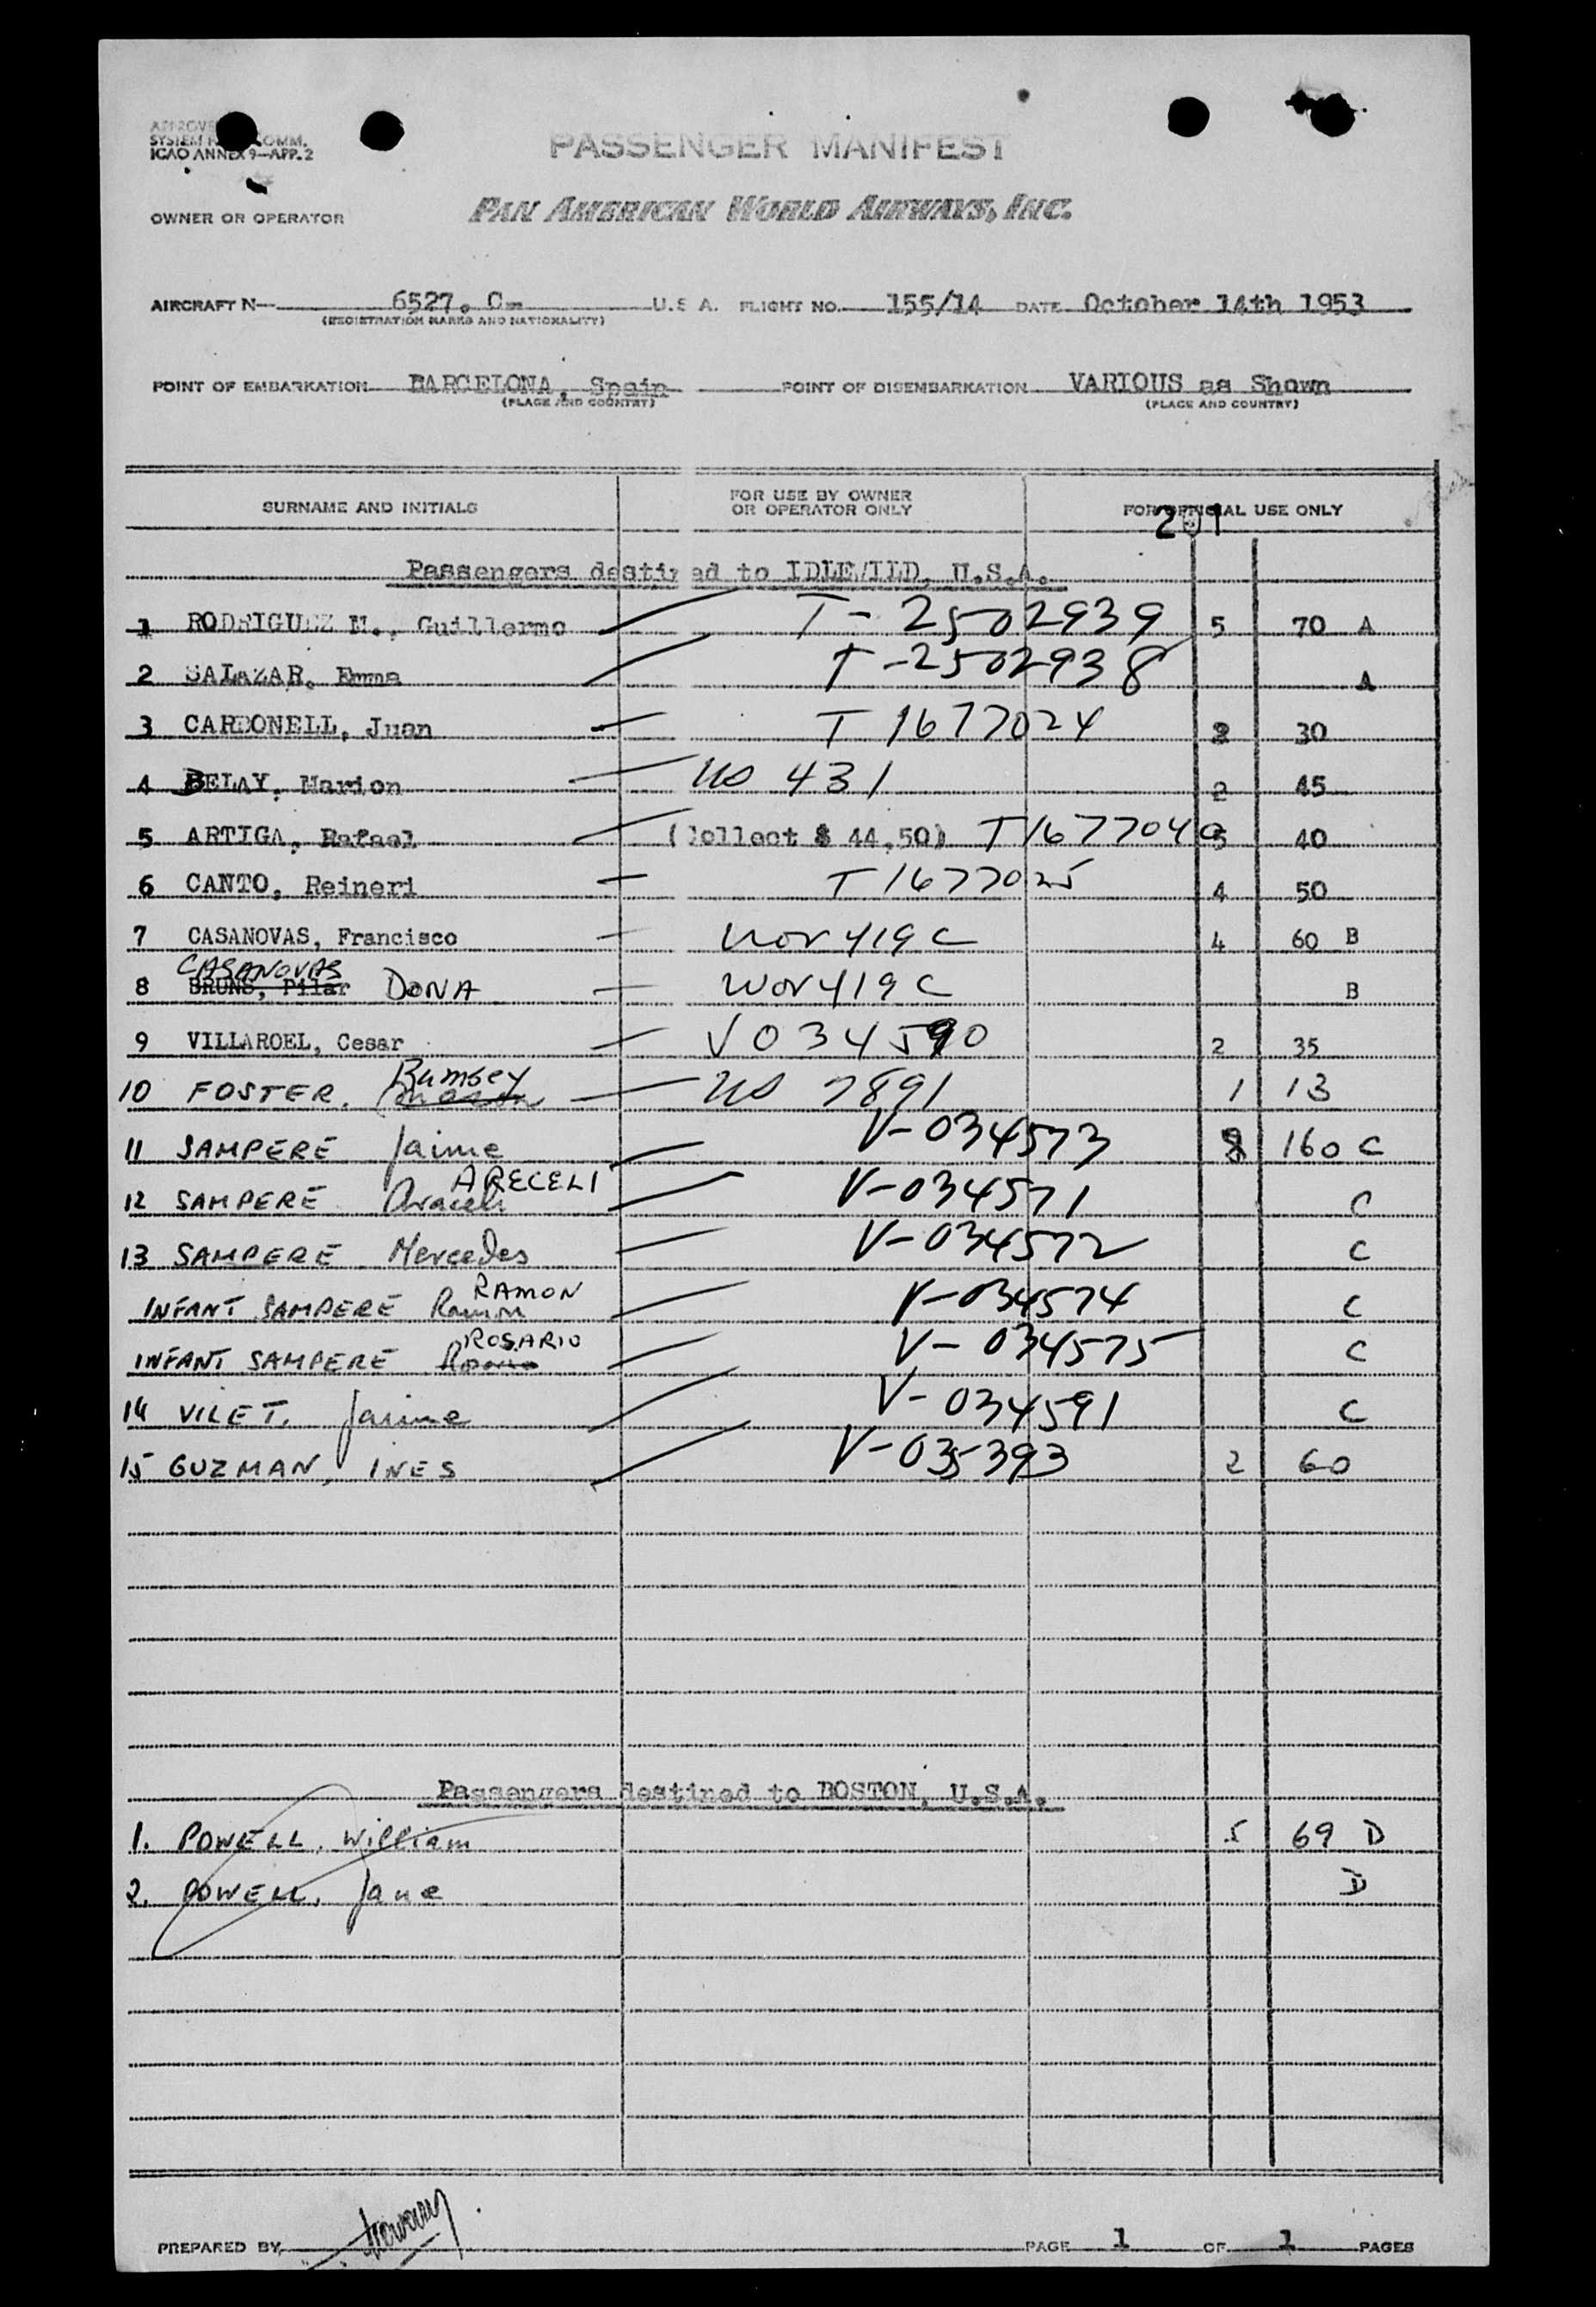 PASSENGER MANIFEST
ICAO ANNEX 9—APP. 2
OWNER OR OPERATOR PAN AMERICAN WORLD AIRWAYS, INC.
AIRCRAFT N— 6527. C- U.S.A. FLIGHT NO. 155/14 DATE October 14th 1953
(REGISTRATION MARKS AND NATIONALITY)
POINT OF EMBARKATION BARCELONA, Spain POINT OF DISEMBARKATION VARIOUS as Shown
(PLACE AND COUNTRY) (PLACE AND COUNTRY)
SURNAME AND INITIALS FOR USE BY OWNER OR OPERATOR ONLY FOR OFFICIAL USE ONLY
Passengers destined to IDLEWILD, U.S.A.
1 RODRIGUEZ M., Guillermo T-2502939 5 70 A
2 SALAZAR, Emma T-2502938 A
3 CARBONELL, Juan T 1677024 30
4 BELAY, Marion US 431 2 45
5 ARTIGA, Rafael (Collect $ 44,50) T1677040 5 40
6 CANTO, Reineri T1677025 4 50
7 CASANOVAS, Francisco 419 C 4 60 B
CASANOVAS
8 BRUNS, Pilar DONA 419 C B
9 VILLAROEL, Cesar V 034590 2 35
Rumsey
10 FOSTER. US 7891 1 13
11 SAMPERE Jaime V-034573 160 C
ARECELI
12 SAMPERE Araceli V-034571 C
13 SAMPERE Mercedes V-034572 C
RAMON
INFANT SAMPERE Ramon V-034574 C
ROSARIO
INFANT SAMPERE V-034575 C
14 VILET, Jaime V-034591 C
15 GUZMAN, INES V-035393 2 60
Passengers destined to BOSTON, U.S.A.
1. POWELL, William 5 69 D
2. POWELL, Jane D
PREPARED BY PAGE 1 OF 1 PAGES